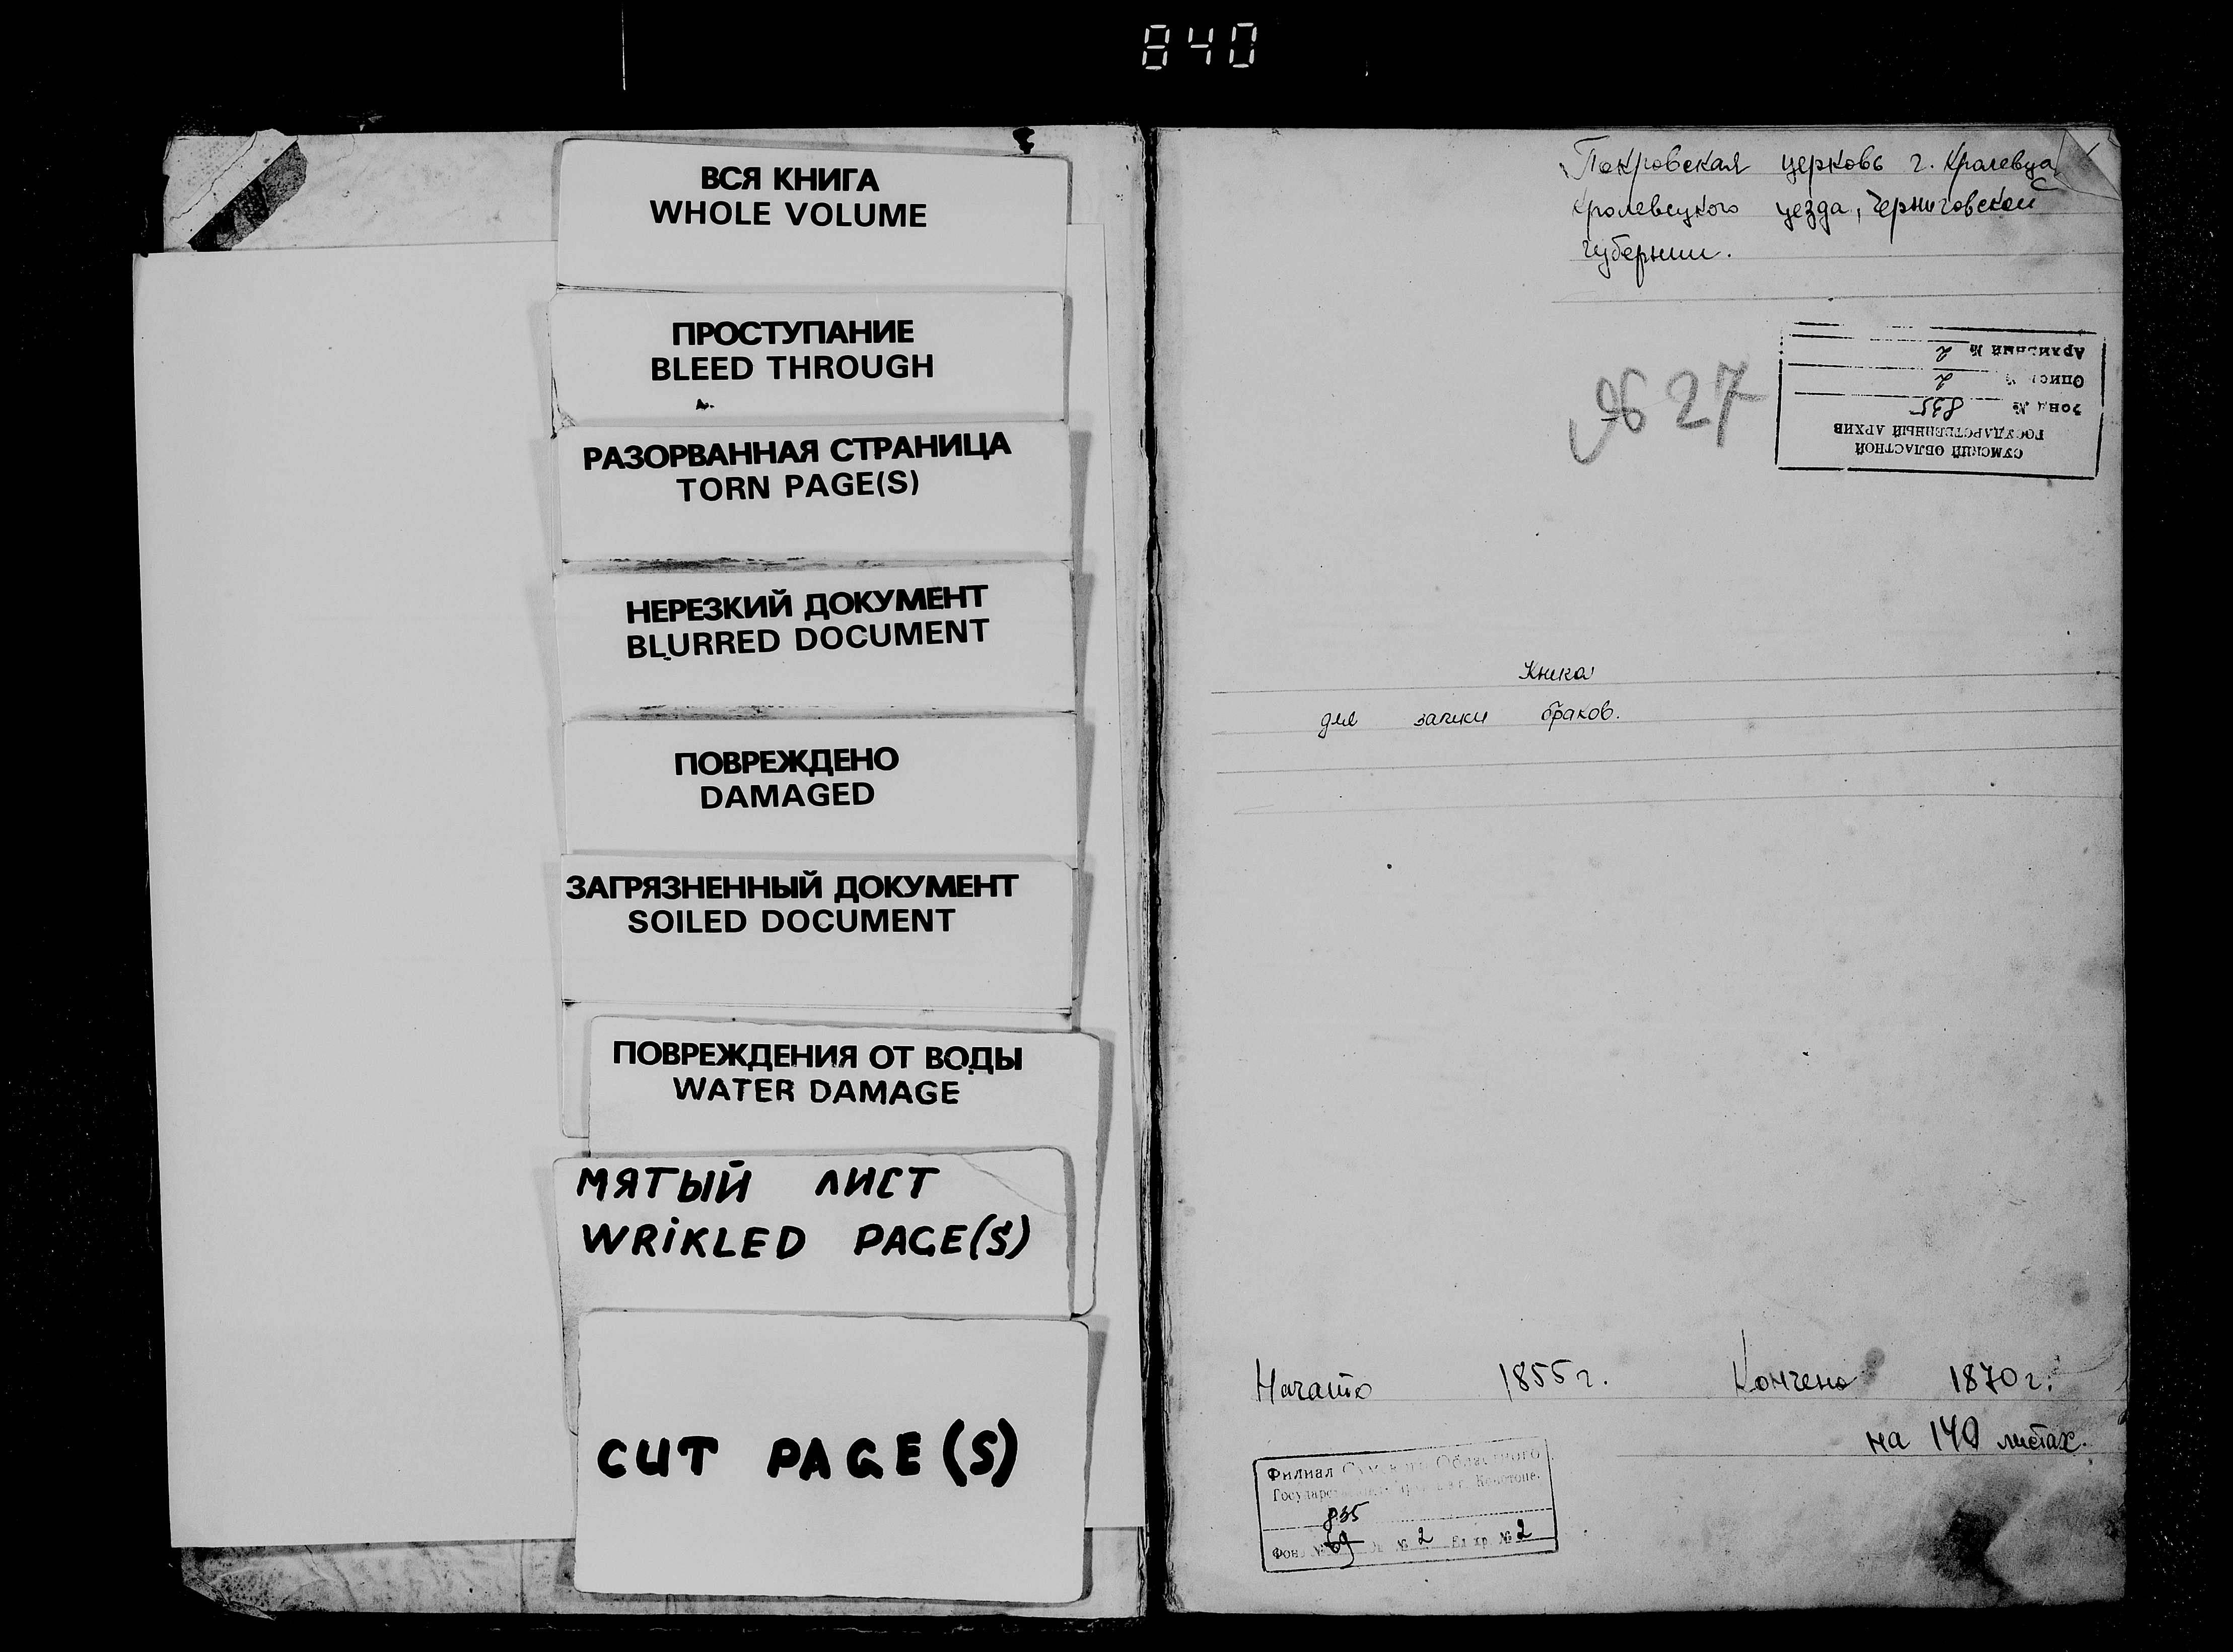 840
ВСЯ КНИГА
WHOLE VOLUME
ПРОСТУПАНИЕ
BLEED THROUGH
РАЗОРВАННАЯ СТРАНИЦА
TORN PAGE(S)
НЕРЕЗКИЙ ДОКУМЕНТ
BLURRED DOCUMENT
ПОВРЕЖДЕНО
DAMAGED
ЗАГРЯЗНЕННЫЙ ДОКУМЕНТ
SOILED DOCUMENT
ПОВРЕЖДЕНИЯ ОТ ВОДЫ
WATER DAMAGE
МЯТЫЙ ЛИСТ
WRIKLED PAGE(S)
CUT PAGE(S)
Покровская церковь г. Кролевца
Кролевецкого уезда, Черниговской
губернии.
№ 27
СУМСКИЙ ОБЛАСТНОЙ
ГОСУДАРСТВЕННЫЙ АРХИВ
Фонд № 835
Опись № 2
Архивный № 2
Книга
для записи браков.
Начато 1855 г. Кончено 1870 г.
на 140 листах.
Филиал Сумского Областного
Государственного архива в г. Конотопе.
835
Фонд № 69 Оп. № 2 Ед. хр. № 2